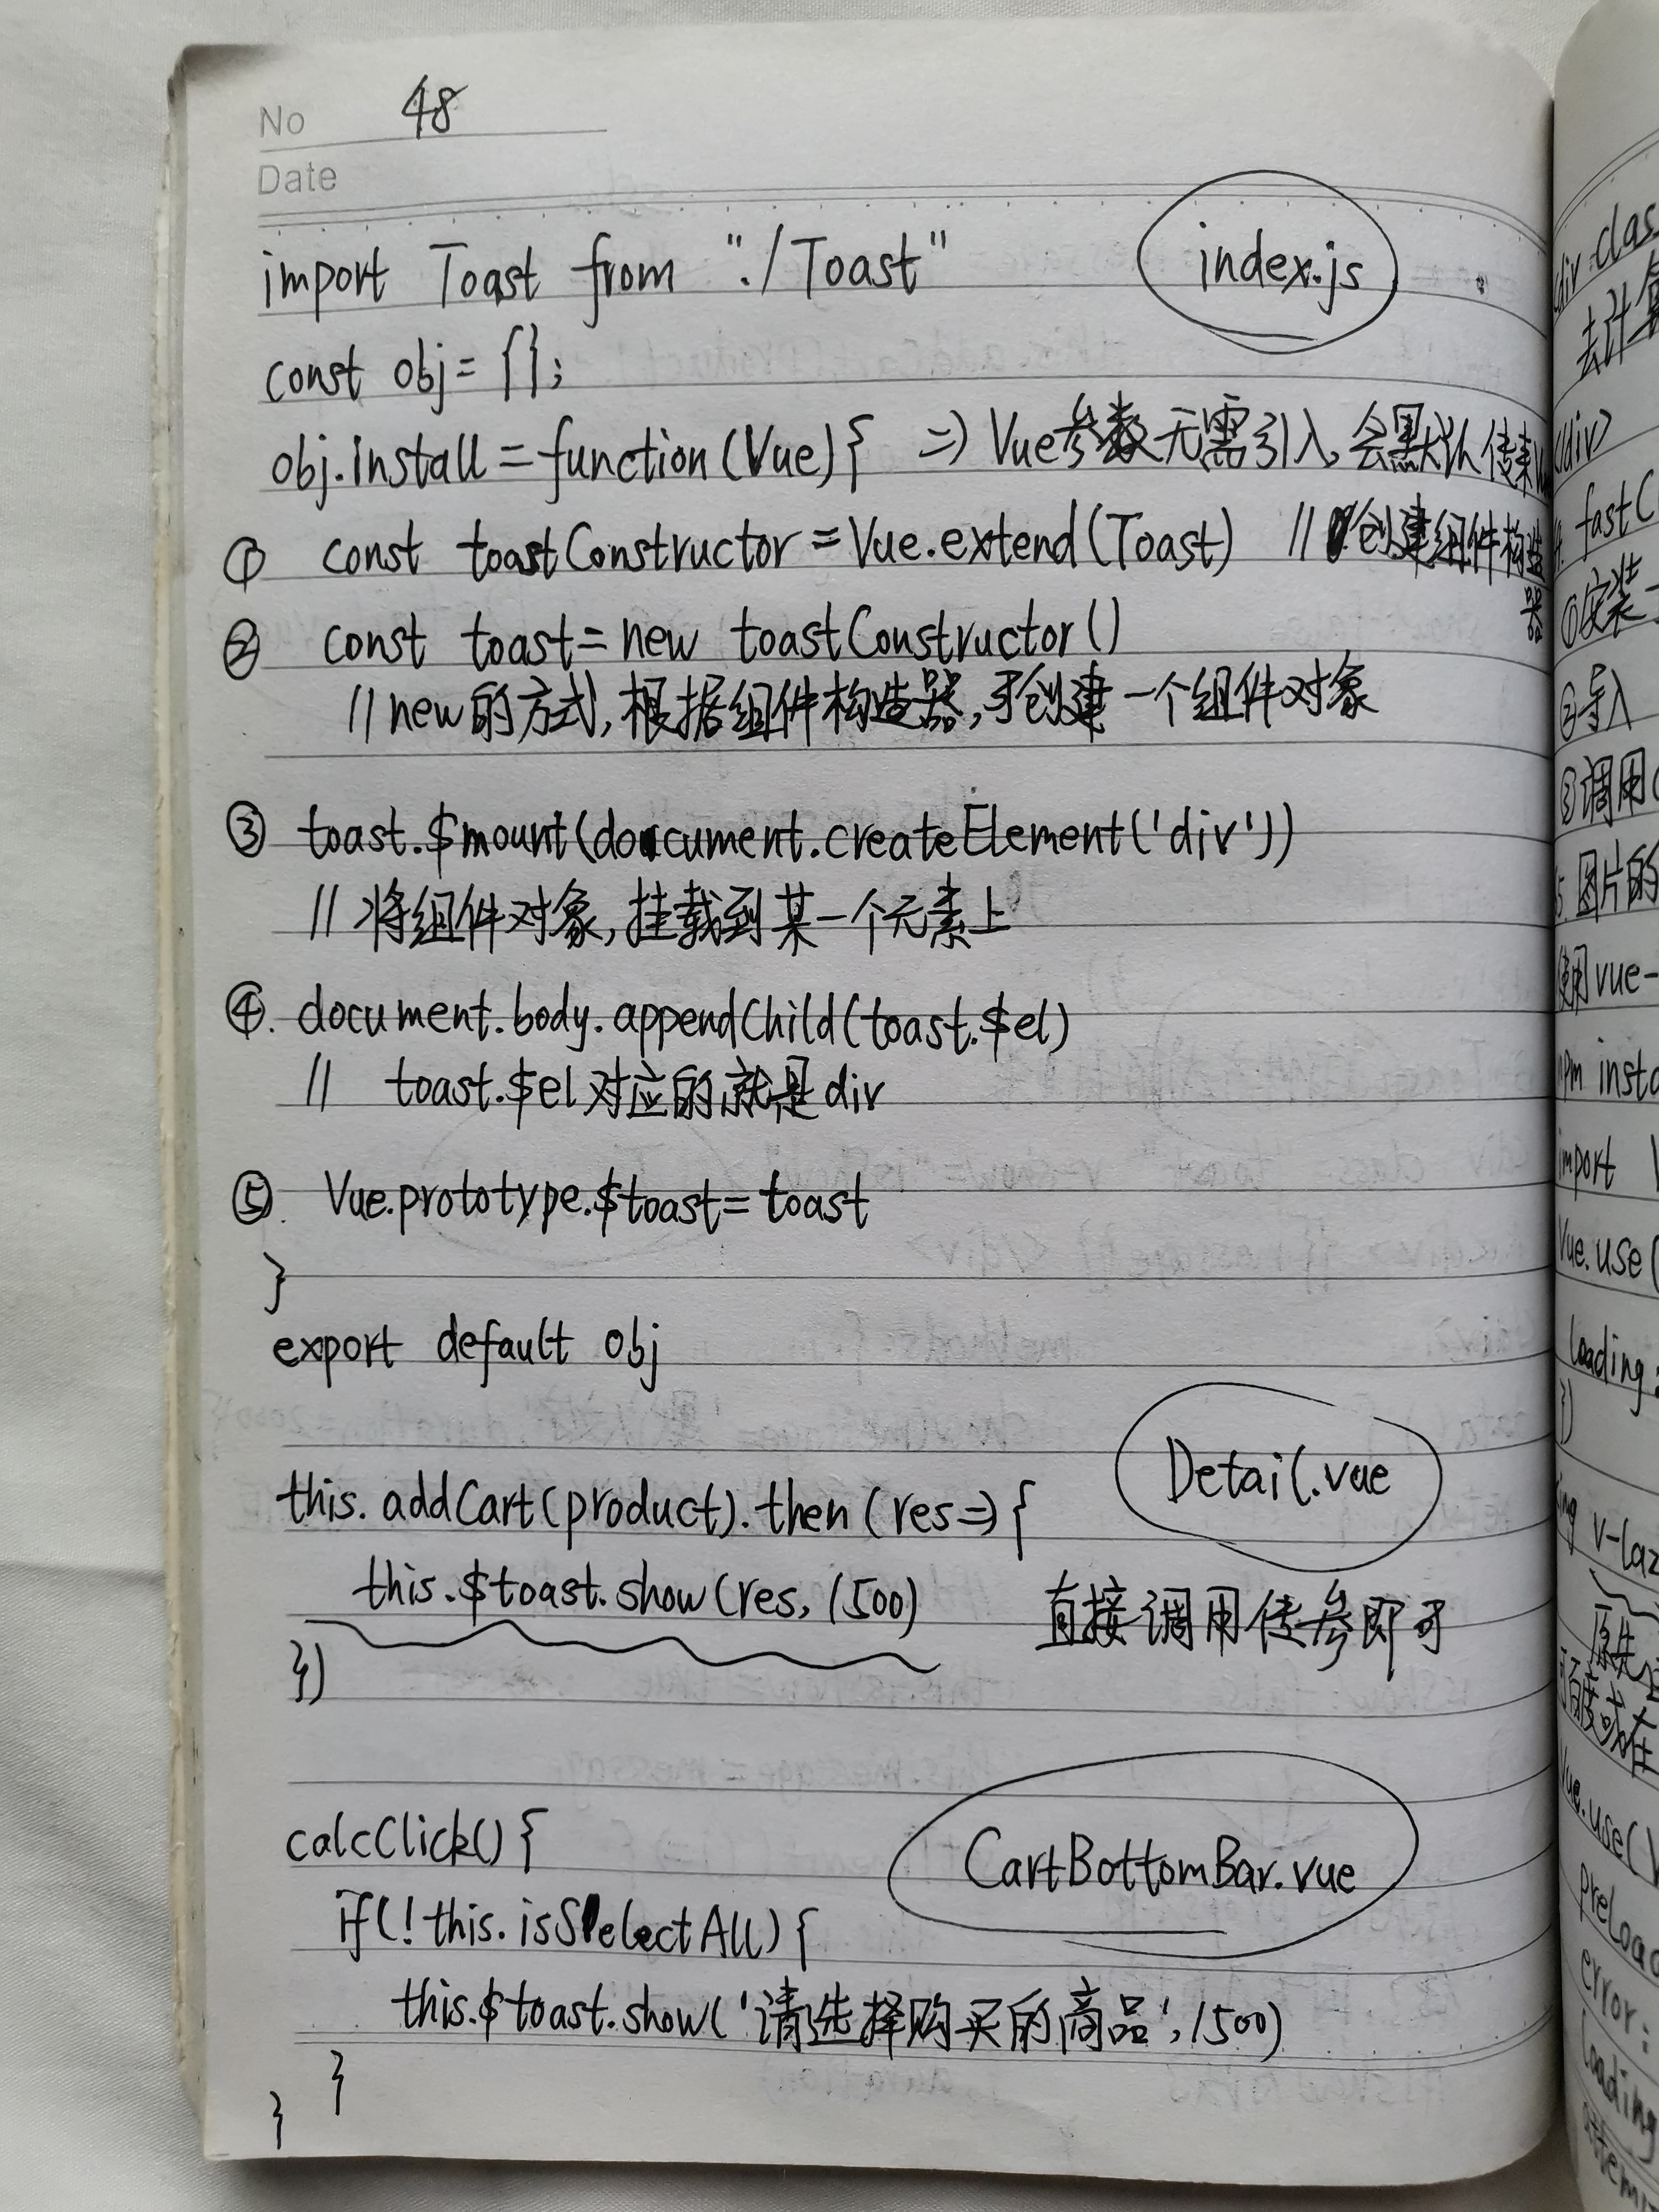 No 48
Date
import Toast from "./Toast"
index.js
const obj = {};
obj.install = function(Vue){ => Vue参数无需引入,会默认传来
① const toastConstructor = Vue.extend(Toast) //创建组件构造
器
② const toast = new toastConstructor()
//new的方式,根据组件构造器,可创建一个组件对象
③ toast.$mount(document.createElement('div'))
// 将组件对象,挂载到某一个元素上
④. document.body.appendChild(toast.$el)
// toast.$el对应的就是div
⑤. Vue.prototype.$toast = toast
}
export default obj
Detail.vue
this.addCart(product).then(res=>{
this.$toast.show(res, 1500) 直接调用传参即可
})
calcClick(){
CartBottomBar.vue
if(!this.isSelectAll){
this.$toast.show('请选择购买的商品', 1500)
}
}
div clas
去计算
</div>
fastC
①安装
②导入
③调用
5. 图片的
使用vue-
npm insta
import V
Vue.use(
loading:
})
img v-laz
原先
可百度或在
Vue.use(V
preLoad
error:
loading
attemp